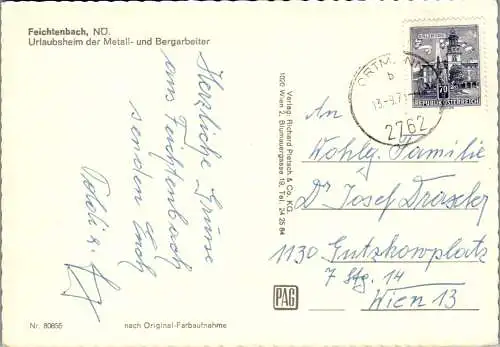 Feichtenbach, NÖ.
Urlaubsheim der Metall- und Bergarbeiter
Herzliche Grüsse
aus Feichtenbach
senden Euch
Poldi &
Nr. 80855
nach Original-Farbaufnahme
Verlag: Richard Pietsch & Co. KG
1020 Wien 2, Blumauergasse 19, Tel. 24 25 84
PAG
ORTMANN
b
2762
70
REPUBLIK ÖSTERREICH
An
Wohlg. Familie
Dr Josef
1130 Gutzkowplatz
7 Stg. 14
Wien 13